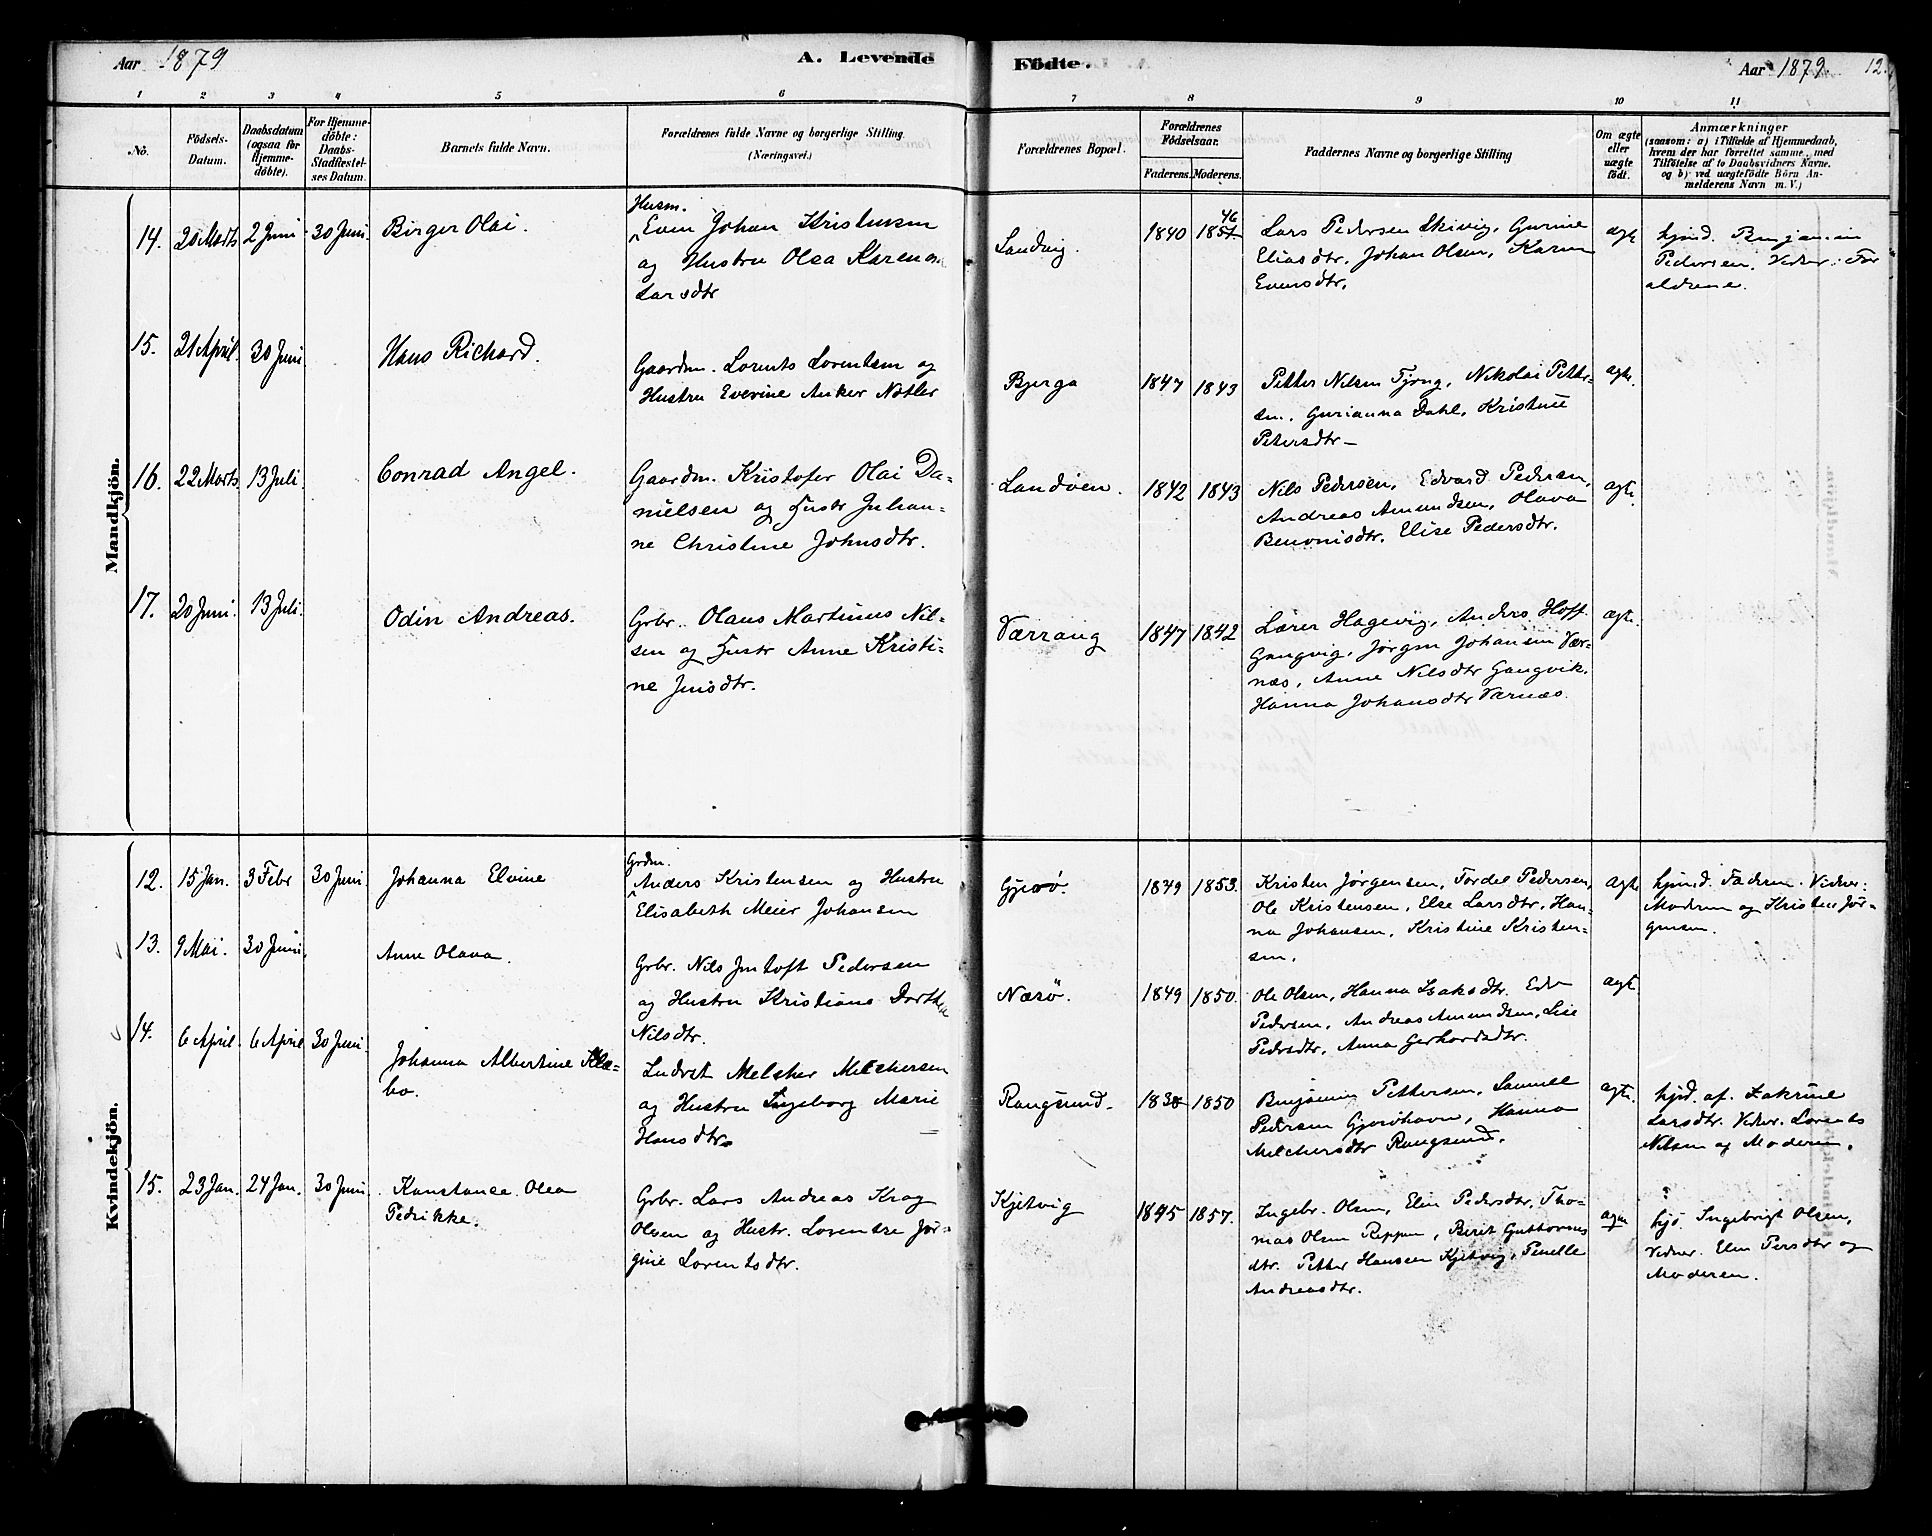 Aar 1879
A. Levende
Födte.
Aar 1879.
12.
1 2 3 4 5 6 7 8 9 10 11
No.
Födsels-
Datum.
Daabsdatum
(ogsaa for
Hjemme-
döbte).
For Hjemme-
döbte:
Daabs-
Stadfæstel-
ses Datum.
Barnets fulde Navn.
Forældrenes fulde Navne og borgerlige Stilling.
(Næringsvei.)
Forældrenes Bopæl.
Forældrenes
Födselsaar.
Faderens. Moderens.
Faddernes Navne og borgerlige Stilling
Om ægte
eller
uægte
födt.
Anmærkninger
(saasom: a) i Tilfælde af Hjemmedaab,
hvem der har forrettet samme, med
Tilföielse af to Daabsvidners Navne,
og b) ved uægtefödte Börn An-
melderens Navn m. V.)
Mandkjön.
14. 20 Marts 2 Juni 30 Juni. Birger Olai.
Husm.
Even Johan Kristensen
og Hustru Olea Karen
Larsdtr
Landvig.
1840 1851 46
Lars Pedersen Skivig, Gurine
Eliasdtr, Johan Olsen, Karen
Evensdtr.
ægte
hjmd. Benjamin
Pedersen. Vidner: For
ældrene.
15. 21 April. 30 Juni Hans Richard.
Gaardm. Lorents Lorentsen og
Hustru Everine Anker Nøtler
Bjerga
1847 1843
Petter Nilsen Fjrng, Nikolai Petter-
sen, Gurianna Dahl, Kristine
Petersdtr
ægte.
16. 22 Marts 13 Juli Conrad Angel.
Gaardm. Kristofer Olai Da-
nielsen og Hustr Juhan-
ne Christine Johnsdtr.
Landøen.
1842 1843
Nils Pedersen, Edvard Pedersen,
Andreas Amundsen, Olava
Benonisdtr. Elise Pedersdtr.
ægte.
17. 20 Juni. 13 Juli Odin Andreas.
Grbr. Olaus Martinus Nil-
sen og Hustr Anne Kristi-
ne Jensdtr.
Værrang
1847 1842
Lærer Hagevig, Anders Hoff
Gangvig, Jørgen Johansen Vær-
næs, Anne Nilsdtr Gangvik.
Hanna Johansdtr Værnæs.
ægte.
Kvindekjön.
12. 15 Jan. 3 Febr 30 Juni. Johanna Elvine
Grdm.
Anders Kristensen og Hustru
Elisabeth Meier Johansen
Gjerø.
1849 1853.
Kristen Jørgensen, Tordel Pedersen,
Ole Kristensen, Else Larsdtr, Han-
na Johansen, Kristine Kristen-
sen.
ægte
hjmd. Faderen. Vidner:
Moderen og Kristen Jør-
gensen.
13. 9 Mai. 30 Juni. Anne Olava.
Grbr. Nils Jentoft Pedersen
og Hustru Kristiane Dorthea
Nilsdtr.
Nærø.
1849 1850.
Ole Olsen, Hanna Isaksdtr. Edv
Pedersen, Andreas Amundsen, Lise
Pedersdtr, Anna Gerhardsdtr.
ægt.
14. 6 April. 6 April 30 Juni. Johanna Albertine Klæ-
bo.
Inderst Melcher Melchersen
og Hustru Ingeborg Marie
Hansdtr.
Rangsund.
1838 1850
Benjamin Pettersen, Samuel
Pedersen Gjerøhavn, Hanna
Melchersdtr Rangsund.
ægte.
hjd. af Zakrine
Larsdtr. Vidner. Lorents
Nilsen og Moderen.
15. 23 Jan. 24 Jan. 30 Juni Konstanse Olea
Pedrikke.
Grbr. Lars Andreas Krog
Olsen og Hustr. Lorentse Jør-
gine Lorentsdtr.
Kjetvig
1845 1857.
Ingebr. Olsen, Elen Pedersdtr, Tho-
mas Olsen Reppen, Berit Guttormsdtr.
Petter Hansen Kjetvig, Penelle
Andreasdtr.
ægte
hjd. Ingebrigt Olsen,
Vidner. Elen Persdtr og
Moderen.